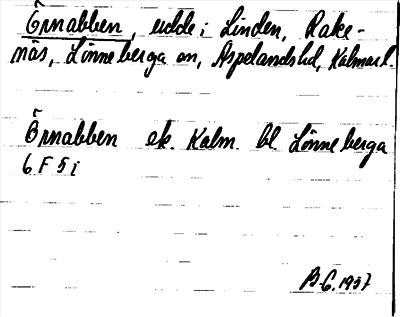 Örnabben, udde i Linden, Rake-
näs, Lönneberga sn, Aspelands hd, Kalmar l.
Örnabben ek. Kalm. bl. Lönneberga
6 F 5 i
B G. 1957